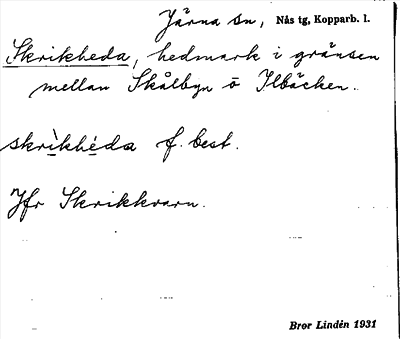 Järna sn, Nås tg, Kopparb. l.
Skrikheda, hedmark i gränsen
mellan Skålbyn o Ilbäcken.
skrìkhéda f. best.
Jfr Skrikkvarn.
Bror Lindén 1931